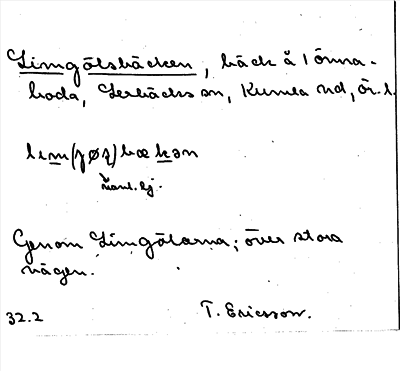 Limgölsbäcken, bäck å 1 Önna-
boda, Lerbäcks sn, Kumla hd, Ör. l.
lım(jøs)bækən
Genom Limgölarna; över stora
vägen.
32.2 T. Ericsson.